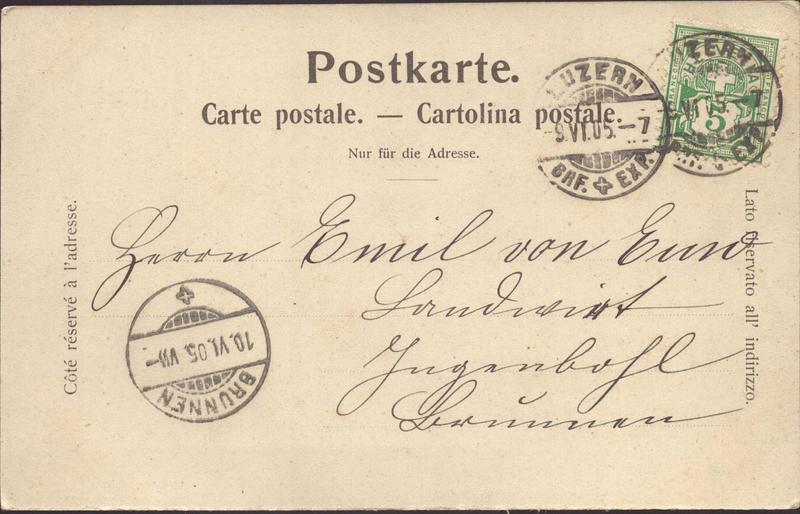 Postkarte.
Carte postale. — Cartolina postale.
Nur für die Adresse.
LUZERN
9.VI.05.-7
BHF. EXP.
LUZERN
VI.05.-7
EXP.
5
Côté réservé à l'adresse.
Lato riservato all' indirizzo.
Herrn Emil von Euw
Landwirt
Ingenbohl
Brunnen
10.VI.05. VII-
BRUNNEN